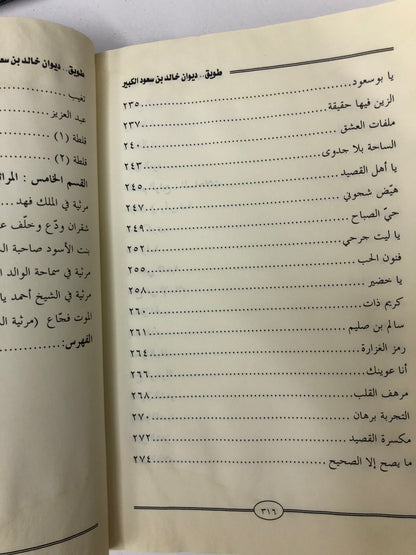 طويق.. ديوان خالد بن سعود الكبير
يا بو سعود ٢٣٥
الزين فيها حقيقة ٢٣٧
ملفات العشق ٢٤٠
الساحة بلا جدوى ٢٤٣
يا أهل القصيد ٢٤٥
هيّض شجوني ٢٤٧
حيّ الصباح ٢٤٩
يا ليت جرحي ٢٥٢
فنون الحب ٢٥٥
يا خضير ٢٥٨
كريم ذات ٢٦٠
سالم بن صليم ٢٦١
رمز الغزارة ٢٦٤
أنا عوينك ٢٦٦
مرهف القلب ٢٦٨
التجربة برهان ٢٧٠
مكسرة القصيد ٢٧٢
ما يصح إلا الصحيح ٢٧٤
٣١٦
طويق.. ديوان خالد بن سعو
تغيب
عبد العزيز
قلطة (١)
قلطة (٢)
القسم الخامس : المرا
مرثية في الملك فهد
شقران ودّع وخلّف ع
بنت الأسود صاحبة ال
مرثية في سماحة الوالد ا
مرثية في الشيخ أحمد يا
الموت فجّاع (مرثية ال
الفهرس: